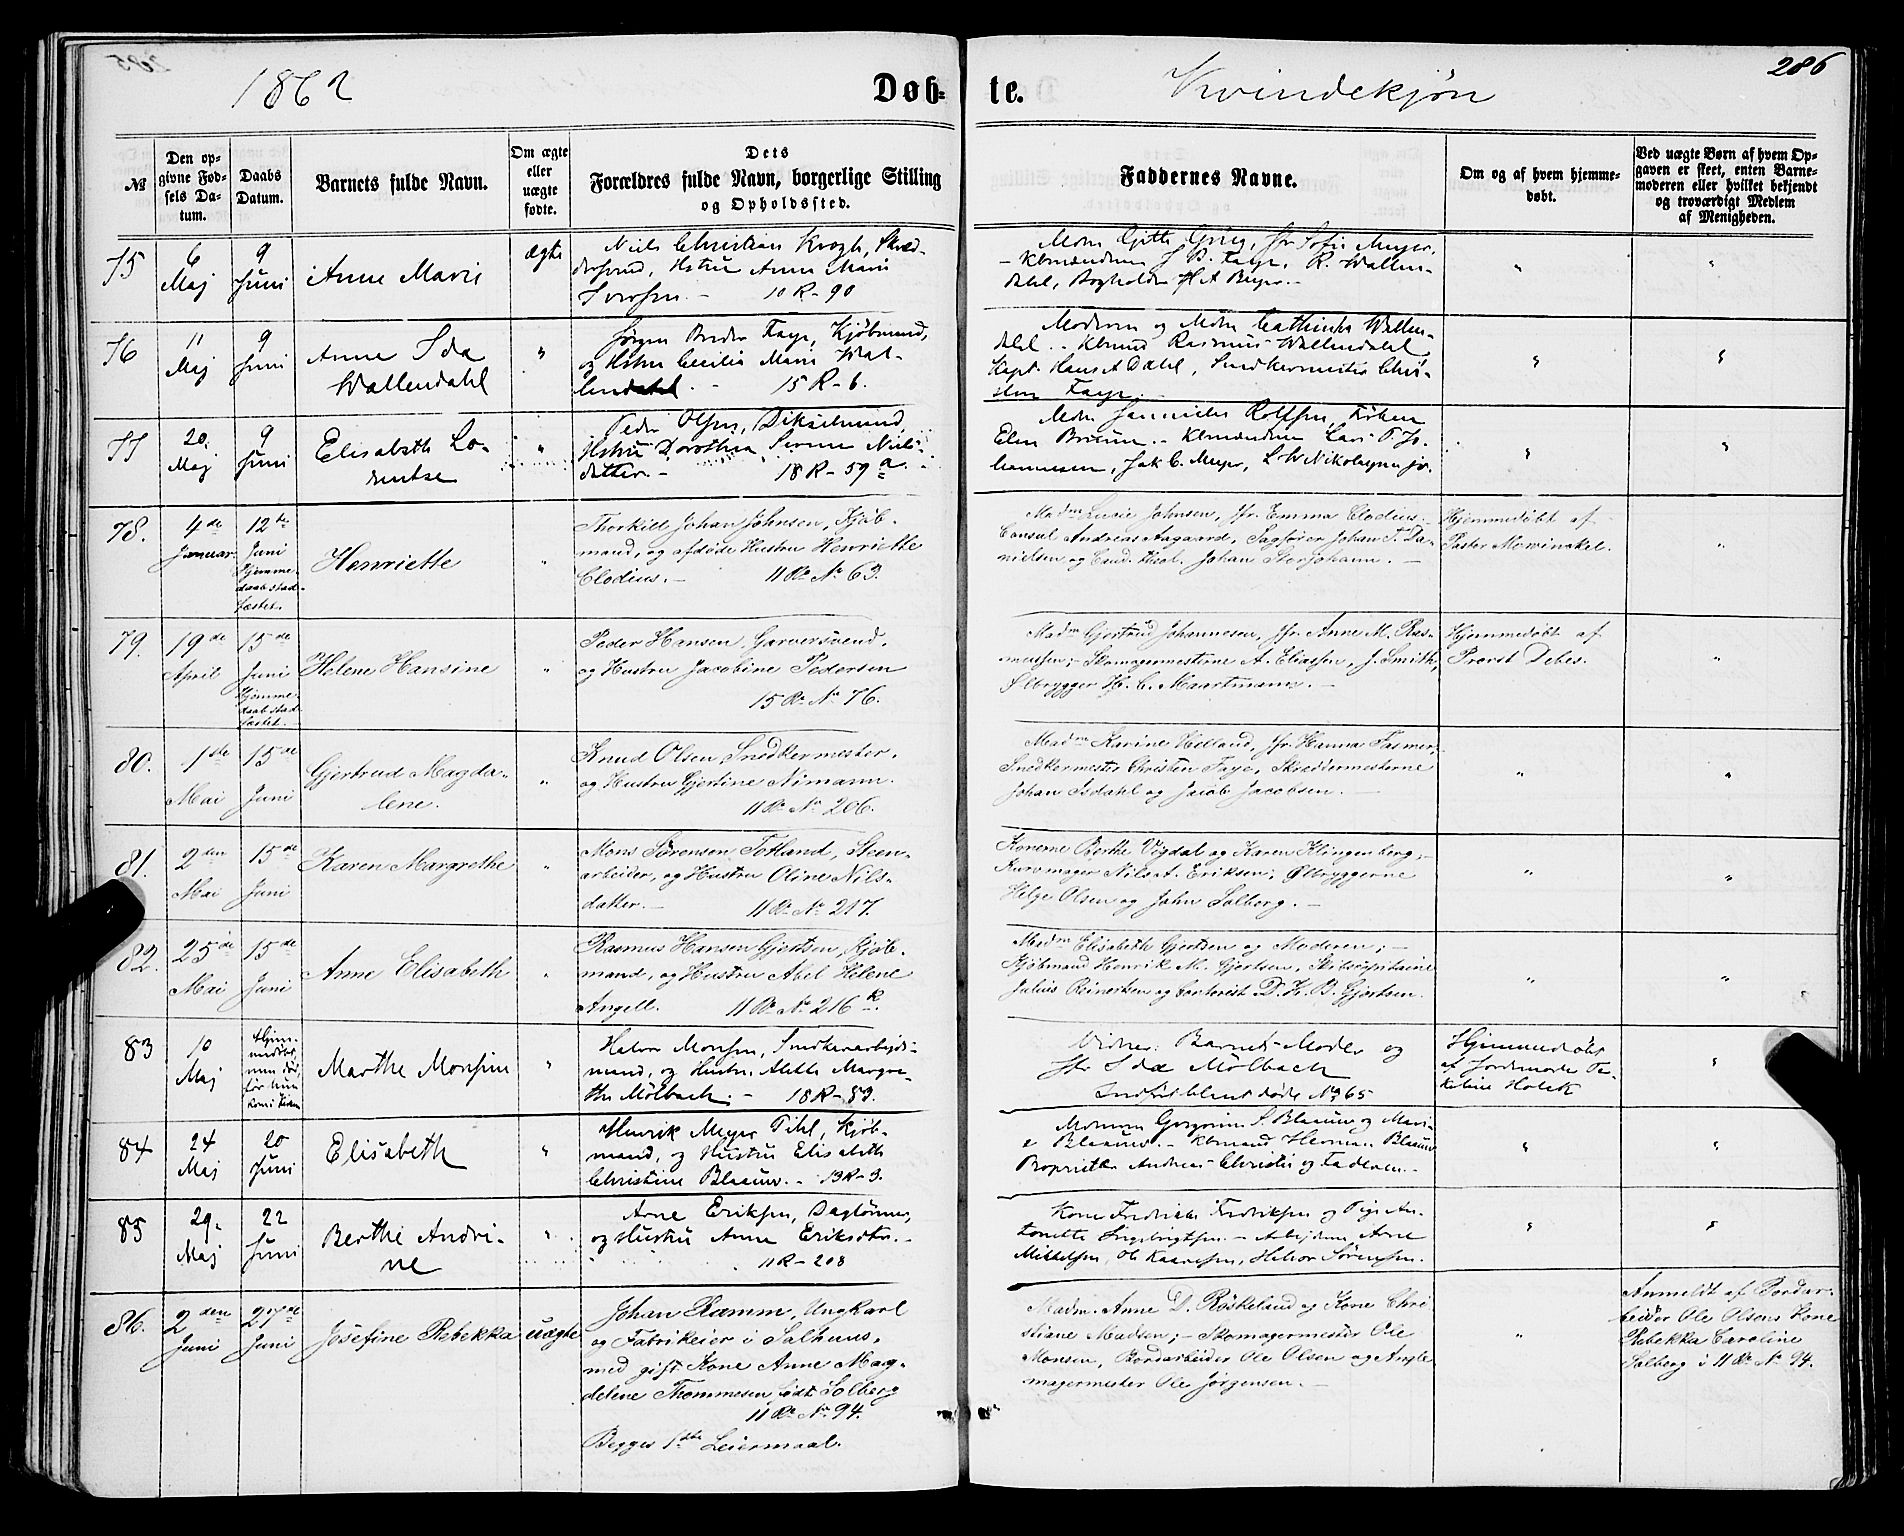 1862 Døb- te. Kvindekjøn 286
№
Den op-
givne Fød-
sels Da-
tum.
Daabs
Datum.
Barnets fulde Navn.
Om ægte
eller
uægte
fødte.
Dets
Forældres fulde Navn, borgerlige Stilling
og Opholdssted.
Faddernes Navne.
Om og af hvem hjemme-
døbt.
Ved uægte Børn af hvem Op-
gaven er skeet, enten Barne-
moderen eller hvilket bekjendt
og troværdigt Medlem
af Menigheden.
75
6
Maj
9
Juni
Anne Marie
ægte
Niels Christian Krogh, Skræd-
dersvend, Hstru Anne Marie
10 R - 90
Mdm Gitte Grieg, Jfr Sofie Meyer,
Kbmændene J. B. Faye, R. Wallen-
dahl, Bogholder H A Beyer. -
"
"
76
11
Maj
9
Juni
Anne Ida
Wallendahl
"
Jørgen Breder Faye, Kjøbmand,
og Hstru Cecilia Marie Wal-
lendahl. - 15 R - 6.
Moderen og Mdm Cathinka Wallen-
dahl. - Kbmand Rasmus Wallendahl,
Kapt. Hans A Dahl, Snedkermester Chri-
sten Faye.
"
"
77
20.
Maj
9
Juni
Elisabeth Lo-
rentse
"
Peder Olsen,
Hstru Dorothea Niels-
datter. - 18 R - 59 a.
Mdm Rolfsen,
Elen - Kbmændene Lars T. Jo-
hannesen, Jak C. Meyer, L W Nikolaysen jr.
"
"
78.
4de
Januar
12te
Juni
Hjemme-
daab stad-
fæstet.
Henriette
"
Thorkild Johan Johnsen, Kjøb-
mand, og afdøde Hustru Henriette
Clodius. - 11 R. No 63.
Madm Lucie Johnsen, Jfr. Emma Clodius.
Consul Andreas Aagaard, Sagfører Johan T. Da-
nielsen og Cand. theol. Johan Storjohann. -
Hjemmedøbt af
Pastor Mowinckel.
"
79.
19de
April
15de
Juni
Hjemme-
daab stad-
fæstet.
Helene Hansine
"
Peder Hansen, Garversvend,
og Hustru Jacobine Pedersen
15 R. No 76.
Madm Gjertrud Johannesen, Jfr. Anne M. Ras-
mussen; Skomagermesterne A. Eliassen, J. Smith,
Ølbrygger H. C. Maartmann. -
Hjemmedøbt af
Provst Debes.
"
80.
1ste
Mai
15de
Juni
Gjertrud Magda-
lene.
"
Knud Olsen Snedkermester,
og Hustru Gjertine Nimann.
11 R. No 206.
Madm Karine Helland, Jfr. Hanna Fasmer,
Snedkermester Christen Faye, Skreddermesterne
Johan Isdahl og Jacob Jacobsen. -
"
"
81.
2den
Mai
15de
Juni
Karen Margrethe
"
Mons Sørensen Totland, Steen-
arbeider, og Hustru Oline Nils-
datter. - 11 R. No 217.
Konerne Berthe Vigdal og Karen Klingenberg, -
Kurvmager Nils A. Eriksen; Ølbryggerne
Helge Olsen og John Solberg. -
"
"
82.
25de
Mai
15de
Juni
Anne Elisabeth
"
Rasmus Hansen Gjertsen, Kjøb-
mand, og Hustru Abel Helene
Angell. 11 R. No 216 k.
Madm Elisabeth Gjertsen og Moderen; -
Kjøbmand Henrik M. Gjertsen, Skibscapitaine
Julius Reinertsen og Contorist D. K. B. Gjertsen.
"
"
83
10
Maj
Hjem-
medøbt,
men død,
før hun
kom i Kirken
Marthe Monsine
"
Halvor Monsen, Snedkerarbejds-
mand, og Hustru Aletta Margre-
the Mölbach. - 18 R - 83.
Vidner: Barnets Moder og
Jfr Ida Mölbach
Indført blant døde No 65
Hjemmedøbt
af Jordmoder Ja-
kobine Holck
"
84
24
Maj
20
Juni
Elisabeth
"
Henrik Meyer Pihl, Kjøb-
mand, og Hustru Elisabeth
Christine Blaauw. - 13 R - 3.
Mdmerne Gregorine S. Blaauw og Mari-
e Blaauw. - Kbmand Herman Blaauw
Andreas Christie og Faderen. -
"
"
85
29.
Maj
22
Juni
Berthe Andri-
ne
"
Arne Eriksen, Daglönner,
og Hustru Anne Eriksdtr. -
11 R - 208
Kone Fredrikke Fredriksen og Pige An-
tonette Ingebrigtsen. - Arbejderne Arne
Mikkelsen, Ole Knudsen, Halvor Sørensen.
"
"
86.
2den
Juni
27de
Juni
Josefine Rebekka
uægte
Johan Ramm, Ungkarl
og Fabrikeier i Salhuus.
med gift Kone Anne Mag-
delene Thommesen født Solberg
11 R. No 94.
Begges 1ste Leiermaal.
Madm. Anne D. Röskeland og Kone Chri-
stiane Madsen; - Skomagermester Ole
Monsen, Bordarbeider Ole Olsen og Angle-
magermester Ole Jørgensen. -
"
Anmeldt af Bordar-
beider Ole Olsens Kone
Rebekka Caroline
Solberg i 11 R. No 94.